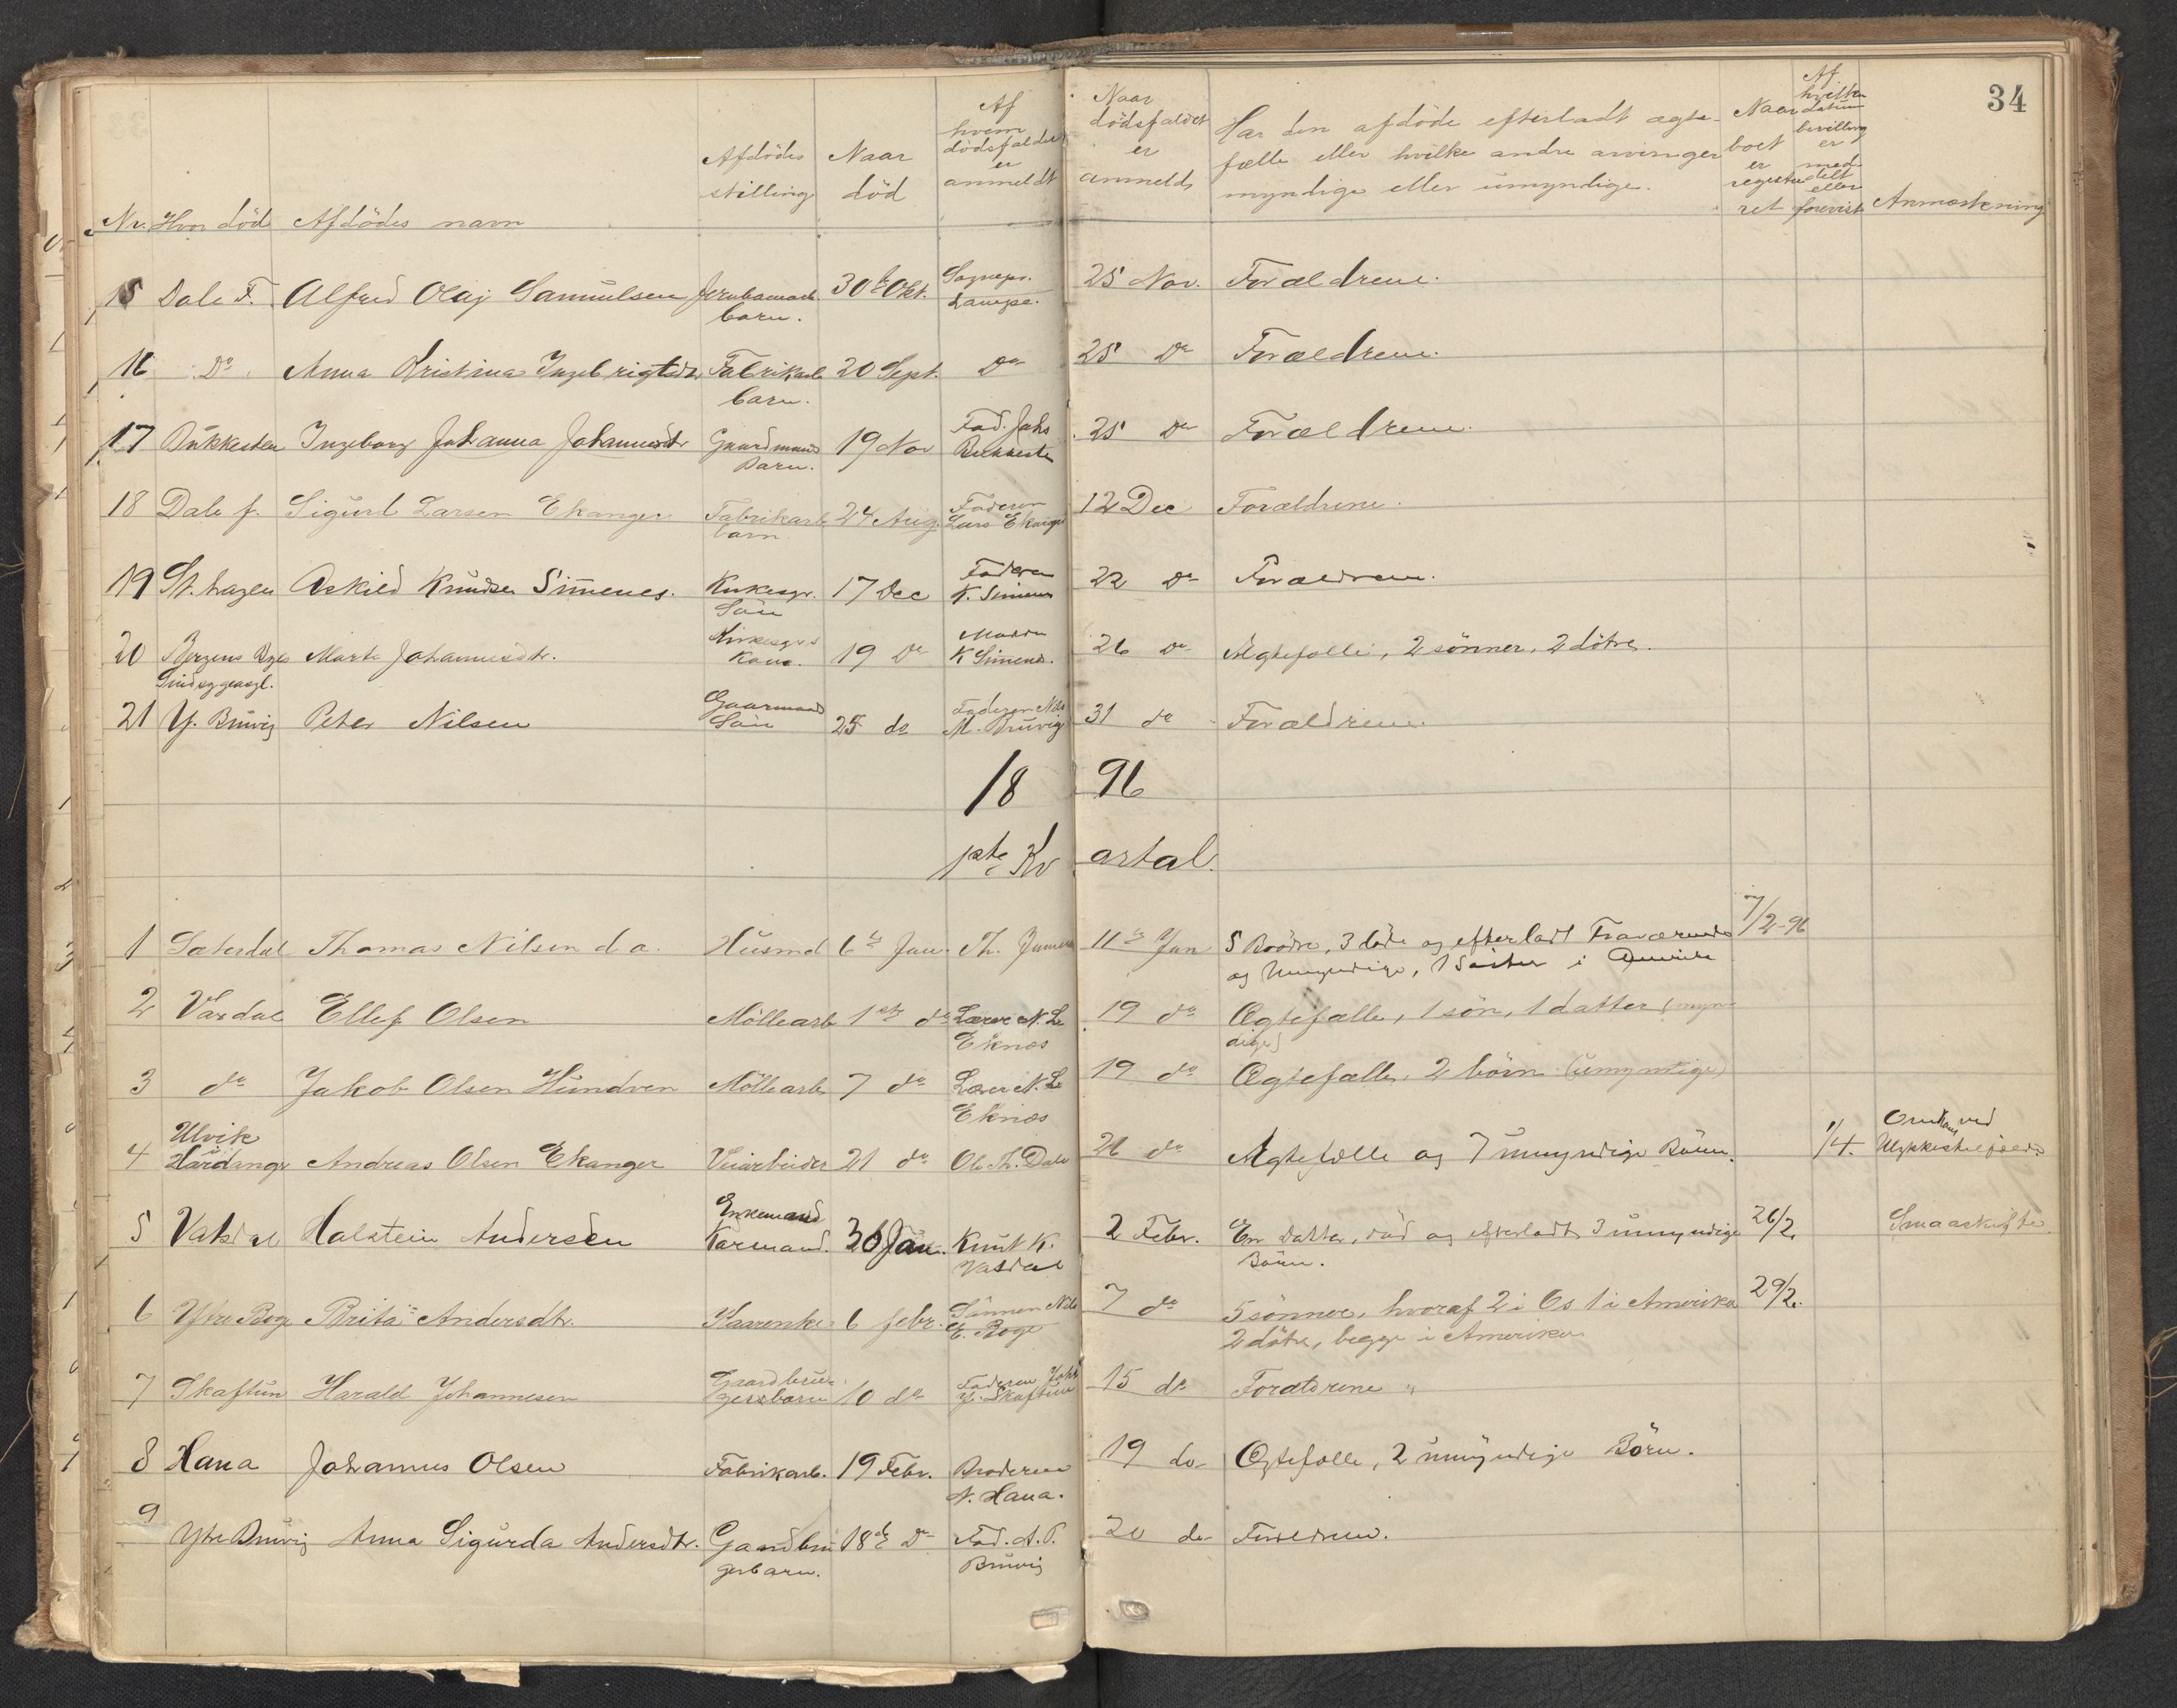 34
Nr. Hvor död Afdödes navn Afdödes stilling Naar död Af hvem dödsfaldet er anmeldt Naar dödsfaldet er anmeldt Har den afdöde efterladt ægtefælle eller hvilke andre arvinger myndige eller umyndige. Naar boet er registreret Af hvilken datum bevilling er meddelt eller forevist Anmærkning
15 Dale F. Alfred Olaj Samuelsen barn. 30te Okt. Sognepr. Lampe. 25 Nov. Forældrene.
16 Do Anna Kristina Ingebrigtsdtr. Fabrikarb barn. 20 Sept. Do 25 Do Forældrene.
17 Bukkesten Ingeborg Johanna Johannesdtr Gaardmands Barn. 19 Nov Fad. Johs Bukkesten 25 Do Forældrene.
18 Dale f. Sigurd Larsen Ekanger Fabrikarb barn 24 Aug. Faderen Lars Ekanger 12 Dec Forældrene.
19 St. hagen Askild Knudsen Simenes. Kirkesgr. Sön 17 Dec Faderen K. Simenes 22 Do Forældrene.
20 Bergens Marta Johannesdtr. Kirkesgrs Kone. 19 Do K Simenes. 26 do Ægtefælle, 2 sönner, 2 dötre.
21 Y. Bruvig Peter Nilsen Gaarmand Sön 25 do Faderen Nils M. Bruvig 31 do Forældrene.
18 96
1ste Kvartal.
1 Sæterdal Thomas Nilsen d a. Husmd 6te Jan. Th. 11te Jan 5 Brödre, 3 döde og efterladt Fraværende og Umyndige, 1 Söster i Amerika 7/2-96
2 Vaxdal Ellef Olsen Möllearb 1ste do Lærer N. L. Eknæs 19 do Ægtefælle, 1 sön, 1 datter (myndige)
3 do Jakob Olsen Hundven Möllearb 7 do Lærer N. L. Eknæs 19 do Ægtefælle, 2 börn (umyndige)
4 Ulvik Hardanger Andreas Olsen Ekanger Veiarbeider 21 do Ol. Th. Dale 26 do Ægtefælle og 7 umyndige Börn. 1/4. Omkom ved Ulykkestilfælde
5 Vaksdal Halstein Andersen Enkemand Kaarmand. 30 Jan. Knut K. Vaksdal 2 Febr. En Datter, död og efterladt 3 umyndige Börn. 26/2. Smaaskifte
6 Ytre Boge Brita Andersdtr. Kaarenke 6 febr. Sönnen Nils E. Boge 7 do 5 sönner, hvoraf 2 i Os 1 i Amerika 2 dötre, begge i Amerika 29/2.
7 Skaftun Harald Johannesen Gaardbrugersbarn 10 do Faderen Johs Skaftun 15 do Forældrene
8 Hana Johannes Olsen Fabrikarb. 19 Febr. Broderen N. Hana. 19 do Ægtefælle, 2 umyndige Börn.
9 Ytre Bruvig Anna Sigurda Andersdtr. Gaardbrugerbarn. 18de Do Fad. A. P. Bruvig 20 do Forældrene.